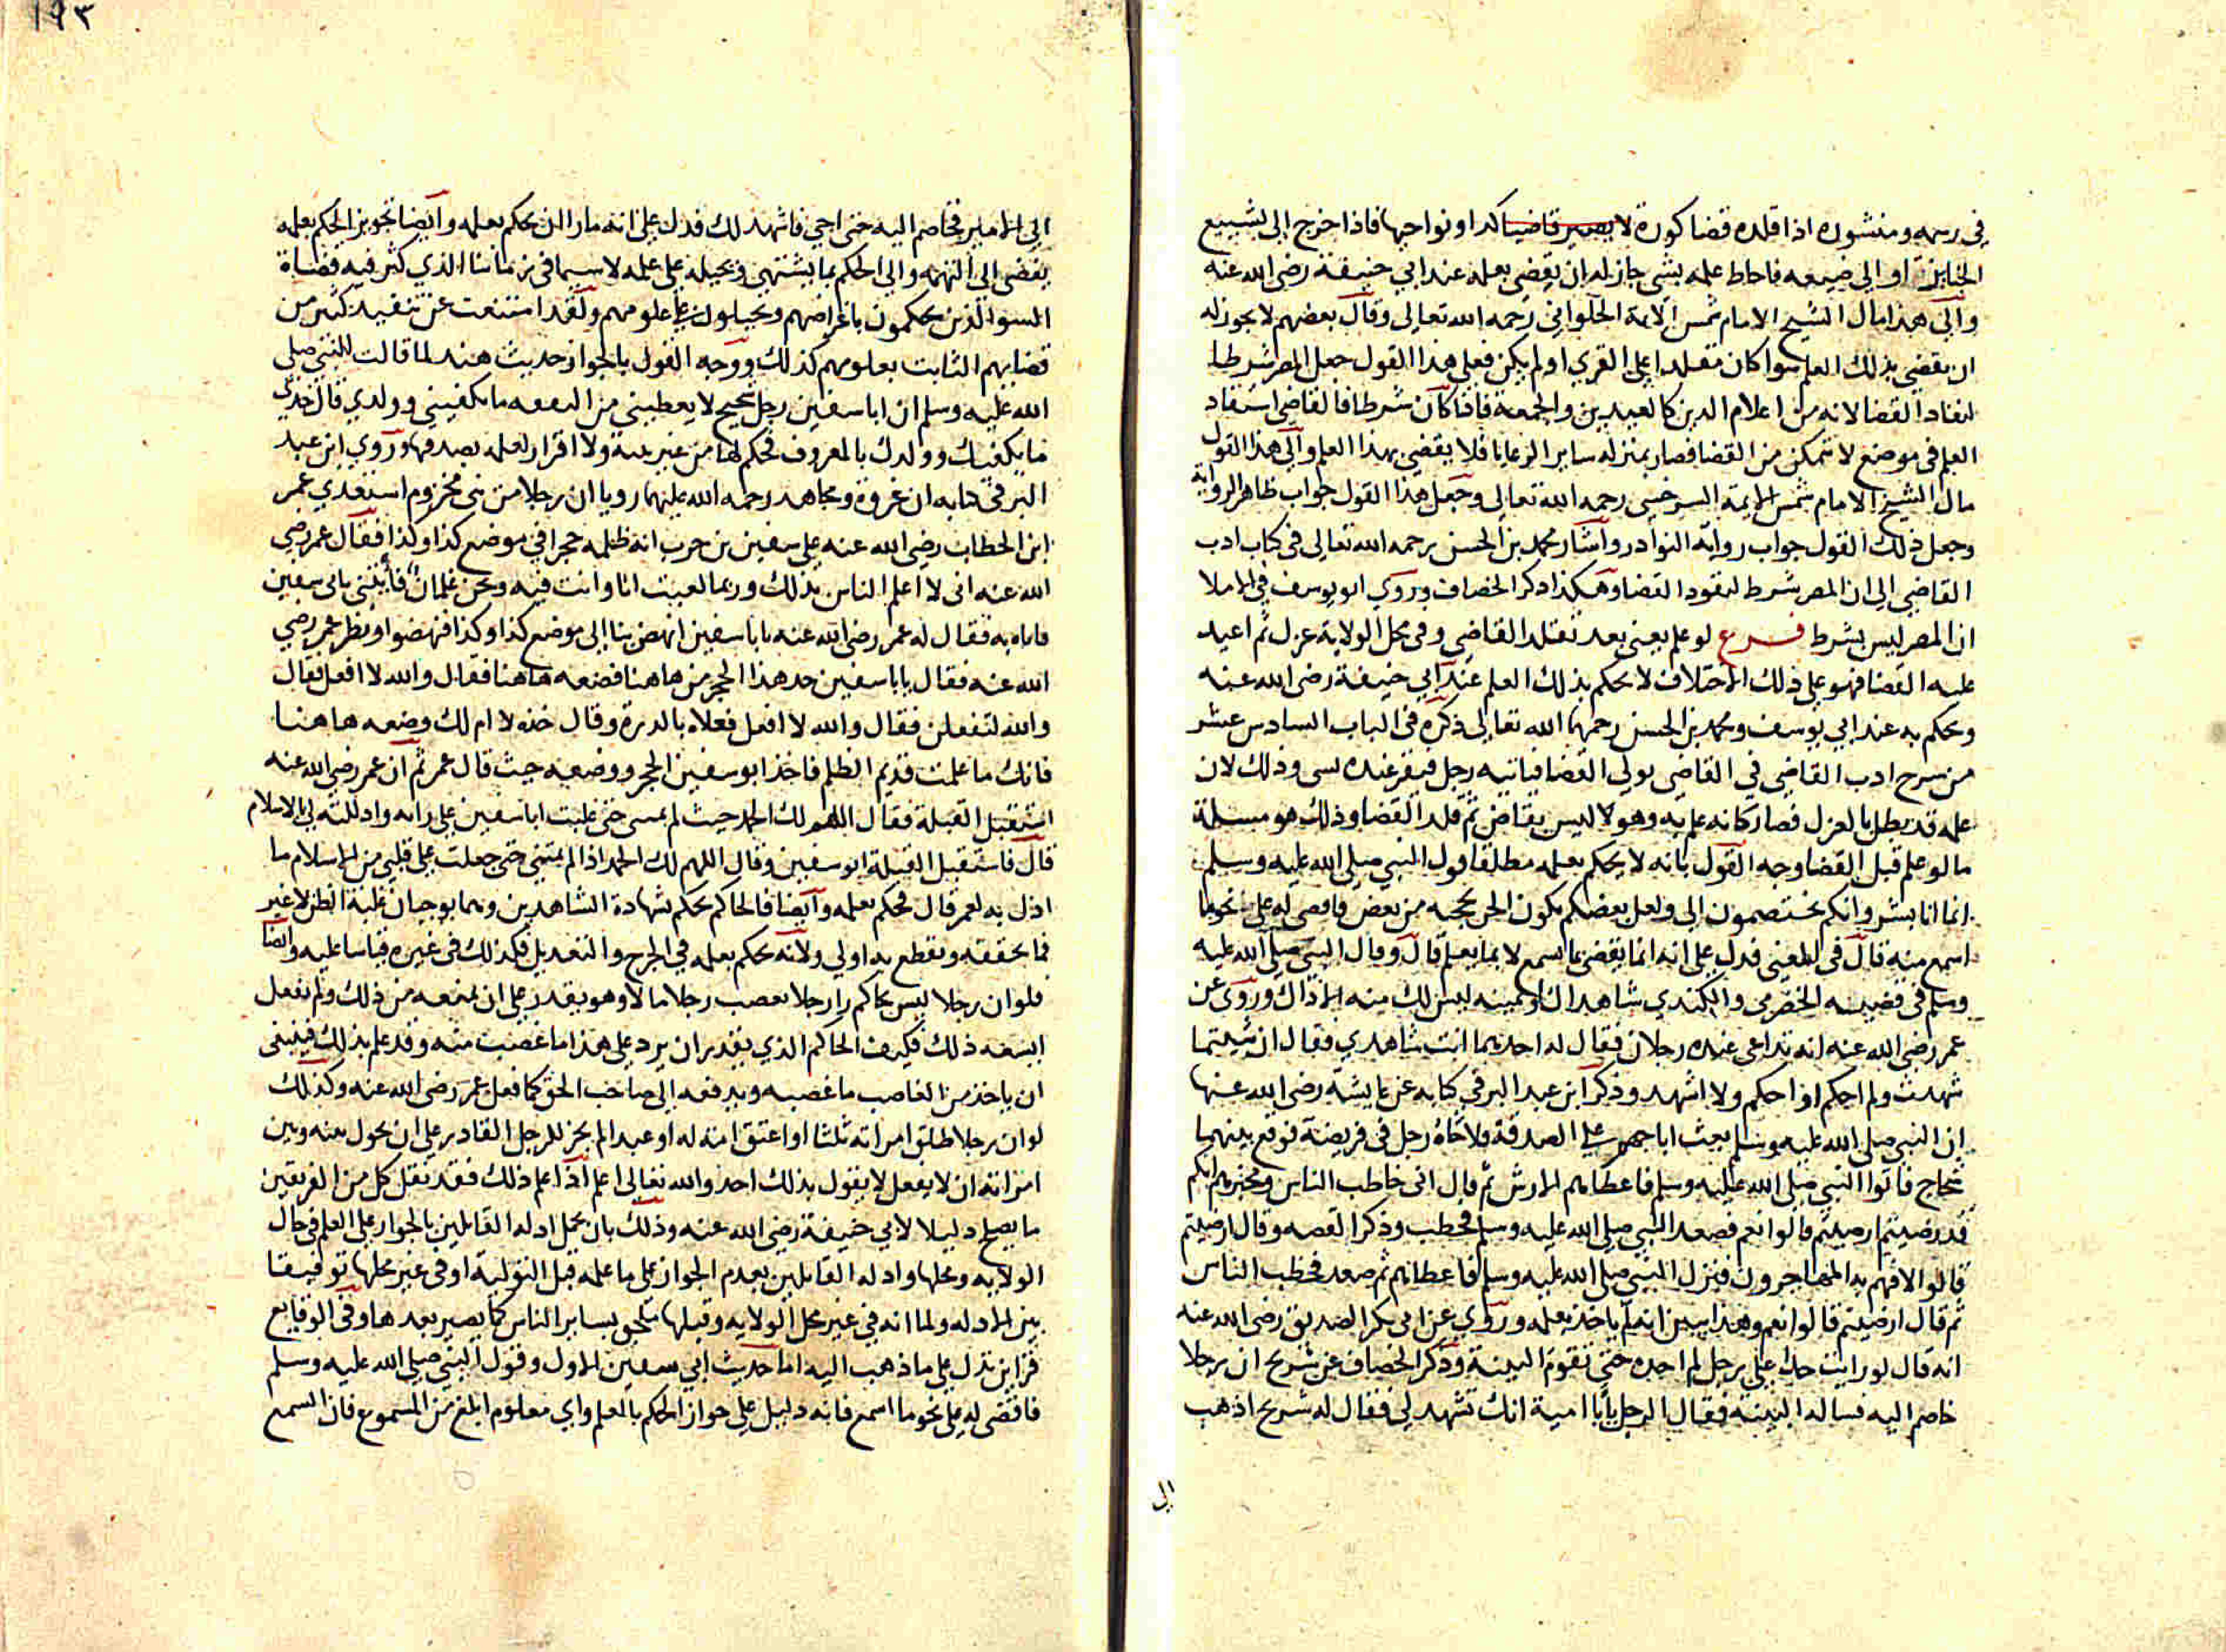 في رسمه ومنشوره اذا قلده قضا كورة لا يصير قاضيا كدا ونواحيها فاذا خرج الى تشييع
الجنايز او الى ضيعه فاحاط علمه بشي جاز له ان يقضي بعلمه عند ابي حنيفة رضي الله عنه
والى هذا مال الشيخ الامام شمس الايمة الحلواني رحمه الله تعالى وقال بعضهم لا يجوز له
ان يقضي بذلك العلم سوا كان مقلدا على القرى او لم يكن فعلى هذا القول جعل المصر شرطا
لنفاد القضا لانه من اعلام الدين كالعيدين والجمعة فاذا كان شرطا فالقاضي استفاد
العلم في موضع لا يتمكن من القضا فصار بمنزله ساير الرعايا فلا يقضي بهذا العلم والى هذا القول
مال الشيخ الامام شمس الايمة السرخسي رحمه الله تعالى وجعل هذا القول جواب ظاهر الرواية
وجعل ذلك القول جواب رواية النوادر واشار محمد بن الحسن رحمه الله تعالى في كتاب ادب
القاضي الى ان المصر شرط لنفود القضا وهكذا ذكر الخصاف وروي ابو يوسف في الاملا
ان المصر ليس بشرط فرع لو علم يعني بعد تقلد القاضي وفي محل الولاية عزل ثم اعيد
عليه القضا فهو على ذلك الاختلاف لا يحكم بذلك العلم عند ابي حنيفة رضي الله عنه
ويحكم به عند ابي يوسف ومحمد بن الحسن رحمهما الله تعالى ذكره في الباب السادس عشر
من شرح ادب القاضي في القاضي يولى القضا فياتيه رجل فيقر عنده بشي وذلك لان
علمه قد بطل بالعزل فصار كانه علم به وهو لا ليس بقاض ثم قلد القضا وذلك هو مسيلة
ما لو علم قبل القضا وجه القول بانه لا يحكم بعلمه مطلقا قول النبي صلى الله عليه وسلم
انما انا بشر وانكم تختصمون الي ولعل بعضكم يكون الحن بحجته من بعض فاقضي له على نحو ما
اسمع منه قال في المغني فدل على انه انما يقضي بما يسمع لا بما يعلم قال وقال النبي صلى الله عليه
وسلم في قضية الحضرمي والكندي شاهداك او يمينه ليس لك منه الا ذاك وروي عن
عمر رضي الله عنه انه تداعى عنده رجلان فقال له احدهما انت شاهدي فقال ان شيتما
شهدت ولم احكم او احكم ولا اشهد وذكر ابن عبد البر في كتابه عن عايشة رضي الله عنها
ان النبي صلى الله عليه وسلم بعث ابا جهم على الصدقة فلاحاه رجل في فريضة فوقع بينهما
شجاج فاتوا النبي صلى الله عليه وسلم فاعطاهم الارش ثم قال اني خاطب الناس ومخبرهم انكم
قد رضيتم ارضيتم قالوا نعم فصعد النبي صلى الله عليه وسلم فخطب وذكر القصه وقال ارضيتم
قالوا لا فهم به المهاجرون فنزل النبي صلى الله عليه وسلم فاعطاهم ثم صعد فخطب الناس
ثم قال ارضيتم قالوا نعم وهذا يبين انه لم ياخذ بعلمه وروي عن ابي بكر الصديق رضي الله عنه
انه قال لو رايت حدا على رجل لم احده حتى تقوم البينة وذكر الخصاف عن شريح ان رجلا
خاصم اليه فساله البينة فقال الرجل يابا امية انك تشهد لي فقال له شريح اذهب
الى
١٩٣
الى الامير تخاصم اليه حتى اجي فاشهد لك فدل على انه ما را ان يحكم بعلمه وايضا تجويز الحكم بعلمه
يفضي الى التهمه والى الحكم بما يشتهي ويحيله على علمه لا سيما في زماننا الذي كثر فيه قضاة
السو الذين يحكمون باغراضهم ويحيلون على علومهم ولقد امتنعت عن تنفيد كثير من
قضايهم الثابت بعلومهم كذلك ووجه القول بالجواز حديث هند لما قالت للنبي صلى
الله عليه وسلم ان ابا سفين رجل شحيح لا يعطيني من النفقه ما يكفيني وولدي قال خذي
ما يكفيك وولدك بالمعروف فحكم لها من غير بينة ولا اقرار لعلمه بصدقها وروي ابن عبد
البر في كتابه ان عروة ومجاهد رحمه الله عليهما رويا ان رجلا من بني مخزوم استعدي عمر
ابن الخطاب رضي الله عنه على سفين بن حرب انه ظلمه حجرا في موضع كذا وكذا فقال عمر رضي
الله عنه اني لا اعلم الناس بذلك وربما لعبت انا وانت فيه ونحن غلمان فايتني بابي سفين
فاتاه به فقال له عمر رضي الله عنه يابا سفين انهض بنا الى موضع كذا وكذا فنهضوا ونظر عمر رضي
الله عنه فقال يابا سفين خد هذا الحجر من هاهنا فضعه هاهنا فقال والله لا افعل فقال
والله لتفعلن فقال والله لا افعل فعلاه بالدرة وقال خذه لا ام لك وضعه هاهنا
فانك ما علمت قديم الظلم فاخذ ابو سفين الحجر ووضعه حيث قال عمر ثم ان عمر رضي الله عنه
استقبل القبلة فقال اللهم لك الحمد حيث لم تمتني حتى غلبت ابا سفين على رايه واذللته لي بالاسلام
قال فاستقبل القبلة ابو سفين وقال اللهم لك الحمد اذا لم تمتني حتى جعلت في قلبي من الاسلام ما
اذل به لعمر قال فحكم بعلمه وايضا فالحاكم يحكم بشهادة الشاهدين وهما يوجبان غلبة الظن لا غير
فما تحققه وتقطع به اولى ولانه يحكم بعلمه في الجرح والتعديل فكذلك في غيره قياسا عليه وايضا
فلو ان رجلا ليس بحاكم را رجلا يغصب رجلا مالا وهو يقدر على ان يمنعه من ذلك ولم يفعل
ايسعه ذلك فكيف الحاكم الذي يقدر ان يرد على هذا ما غصبت منه وقد علم بذلك فينبغي
ان ياخذ من الغاصب ما غصبه ويدفعه الى صاحب الحق كما فعل عمر رضي الله عنه وكذلك
لو ان رجلا طلق امراته ثلثا او اعتق امته له او عبدا لم يجز للرجل القادر على ان يحول بينه وبين
امراته ان لا يفعل لا يقول بذلك احد والله تعالى اعلم اذا علم ذلك فقد نقل كل من الفريقين
ما يصلح دليلا لابي حنيفة رضي الله عنه وذلك بان يحمل ادله القايلين بالجواز على العلم في حال
الولايه ومحلها وادله القايلين بعدم الجواز على ما علمه قبل التولية او في غير محلها توفيقا
بين الادله ولما انه في غير محل الولايه وقبلها ملحق بساير الناس كما يصير بعدها وفي الوقايع
قراين تدل على ما ذهب اليه اما حديث ابي سفين الاول وقول النبي صلى الله عليه وسلم
فاقضى له على نحو ما اسمع فانه دليل على جواز الحكم بالعلم واي معلوم ابلغ من المسموع فان السمع